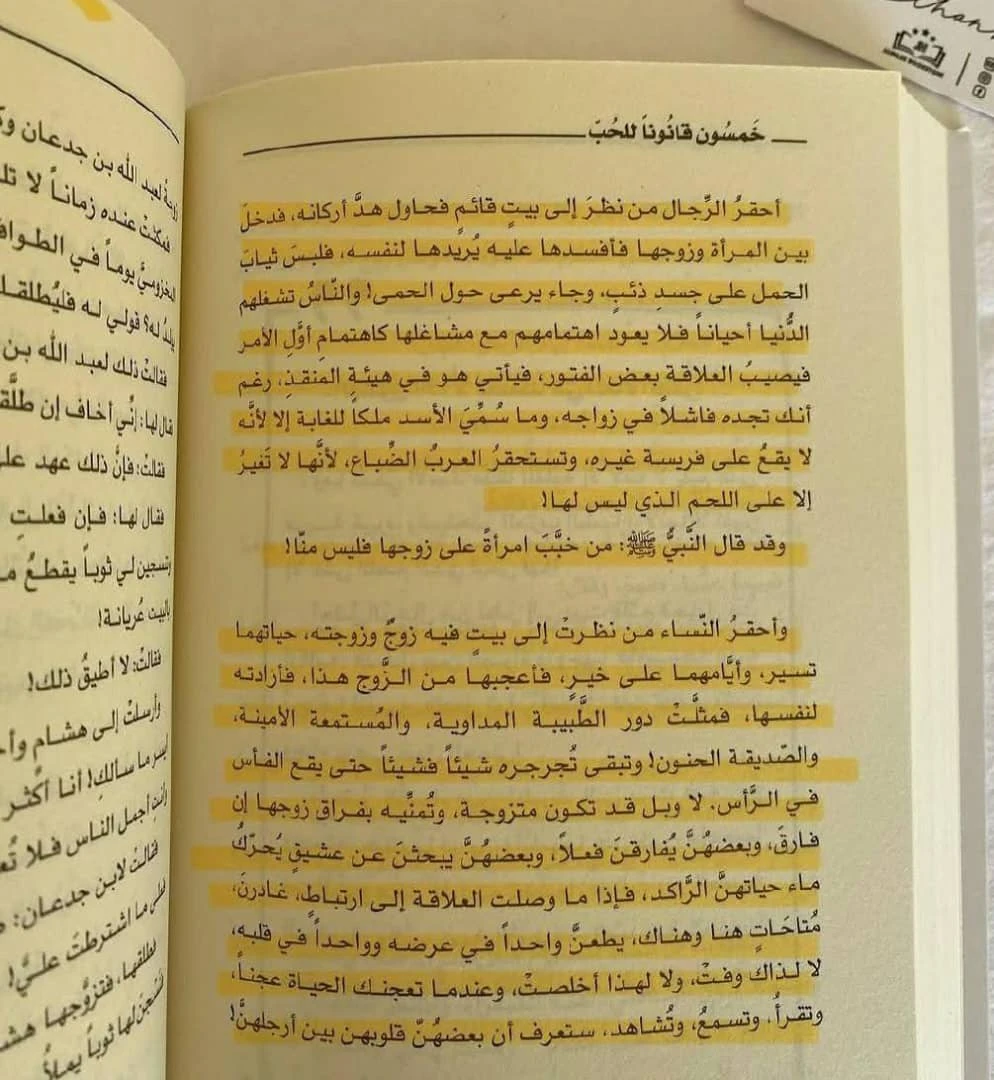 خَمسُون قانُوناً للحُبّ
أحقرُ الرِّجال من نظرَ إلى بيتٍ قائمٍ فحاول هدَّ أركانه، فدخلَ
بين المرأة وزوجها فأفسدها عليه يُريدها لنفسه، فلبسَ ثيابَ
الحمل على جسدِ ذئبٍ، وجاء يرعى حول الحمى! والنّاسُ تشغلهم
الدُّنيا أحياناً فلا يعود اهتمامهم مع مشاغلها كاهتمامِ أوَّلِ الأمر
فيصيبُ العلاقة بعض الفتور، فيأتي هو في هيئةِ المنقذِ، رغم
أنك تجده فاشلاً في زواجه، وما سُمِّيَ الأسد ملكاً للغابة إلا لأنَّه
لا يقعُ على فريسة غيره، وتستحقرُ العربُ الضِّباع، لأنَّها لا تَغيرُ
إلا على اللحم الذي ليس لها!
وقد قال النَّبيُّ ﷺ: من خبَّبَ امرأةً على زوجها فليس منّا!
وأحقرُ النّساء من نظرتْ إلى بيتٍ فيه زوجٌ وزوجته، حياتهما
تسير، وأيَّامهما على خيرٍ، فأعجبها من الزَّوج هذا، فأرادته
لنفسها، فمثلَّتْ دور الطَّبيبة المداوية، والمُستمعة الأمينة،
والصّديقة الحنون! وتبقى تُجرجره شيئاً فشيئاً حتى يقع الفأس
في الرَّأس. لا وبل قد تكون متزوجة، وتُمنِّيه بفراق زوجها إن
فارقَ، وبعضهُنَّ يُفارقنَ فعلاً، وبعضهُنَّ يبحثنَ عن عشيقٍ يُحرّكُ
ماء حياتهنَّ الرَّاكد، فإذا ما وصلت العلاقة إلى ارتباطٍ، غادرنَ،
مُتاحَاتٍ هنا وهناك، يطعنَّ واحداً في عرضه وواحداً في قلبه،
لا لذاك وفتْ، ولا لهذا أخلصتْ، وعندما تعجنك الحياة عجناً،
وتقرأُ، وتسمعُ، وتُشاهد، ستعرف أن بعضهُنّ قلوبهن بين أرجلهنَّ!
زوجةً لعبد الله بن جدعان
فمكثتْ عنده زماناً لا
المخزوميُّ يوماً في
له؟ قولي له فليُطلقك
فقالتْ ذلك لعبد الله بن
قال لها: إنّي أخاف إن
فقالتْ: فإنَّ ذلك عهد
فقال لها: فإن فعلتِ
وتنسجين لي ثوباً يقطعُ
بالبيت عُريانة!
فقالتْ: لا أطيقُ ذلك!
وأرسلتْ إلى هشام
ما سألكِ! أنا أكثر
وأنتِ أجمل الناس فلا
فقالتْ لابن جدعان:
ما اشترطتَ عليَّ!
فطلقها، فتزوَّجها
لها ثوباً